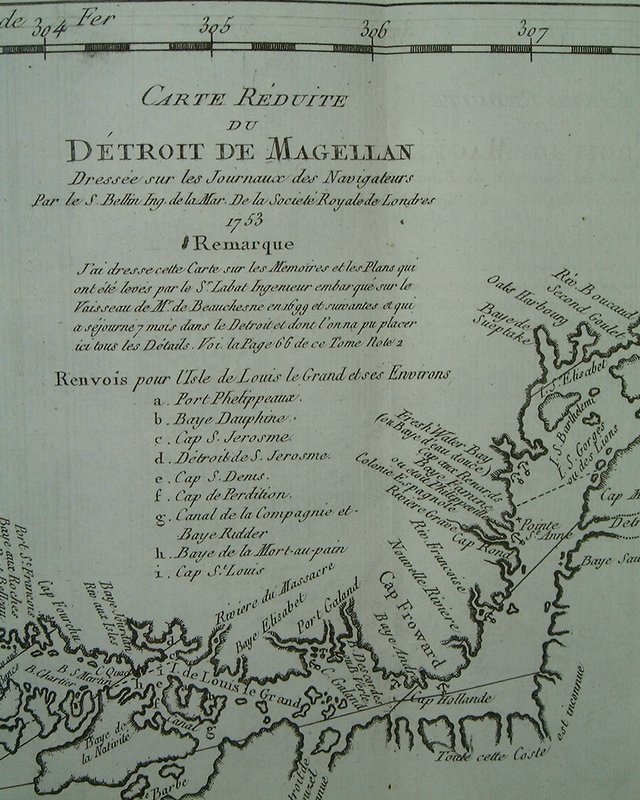 de Fer
304 305 306 307
CARTE RÉDUITE
DU
DÉTROIT DE MAGELLAN
Dressée sur les Journaux des Navigateurs
Par le S. Bellin Ing. de la Mar. De la Societé Royale de Londres
1753
Remarque
J'ai dressé cette Carte sur les Memoires et les Plans qui
ont été levés par le Sr. Labat Ingenieur embarqué sur le
Vaisseau de Mr. de Beauchesne en 1699 et suivantes et qui
a séjourné 7 mois dans le Detroit et dont l'on n'a pu placer
ici tous les Détails. Voi. la Page 66 de ce Tome Note 2
Renvois pour l'Isle de Louis le Grand et ses Environs
a. Port Phelippeaux.
b. Baye Dauphine.
c. Cap S. Jerosme.
d. Détroit de S. Jerosme.
e. Cap S. Denis.
f. Cap de Perdition.
g. Canal de la Compagnie et
Baye Ridder
h. Baye de la Mort-au-pain
i. Cap St. Louis
Riv. Boucaut
Second Goulet
Oaks Harbourg
Baye de
I. St. Elisabet
I. S. Barthelemi
I. S. Gorges
ou des Lions
Fresh Water Bay
(ou Baye d'eau douce)
Cap aux Renards
Baye Famine
Colonie Espagnole
Riviere Grave
Cap Rond
Pointe
Ste. Anne
Cap
Baye
Riv. Françoise
Nouvelle Riviere
Cap Froward
Baye
Cap Hollande
Port Galand
C. Galand
Riviere du Massacre
Baye Elisabet
I. de Louis le Grand
Canal
g
d
c
i
f
Riv. aux
Port St. François
Cap
C. Quad
B. S. Martin
B. Chartier
Baye de
la Nativité
Barbe
Toute cette Coste
est inconnue